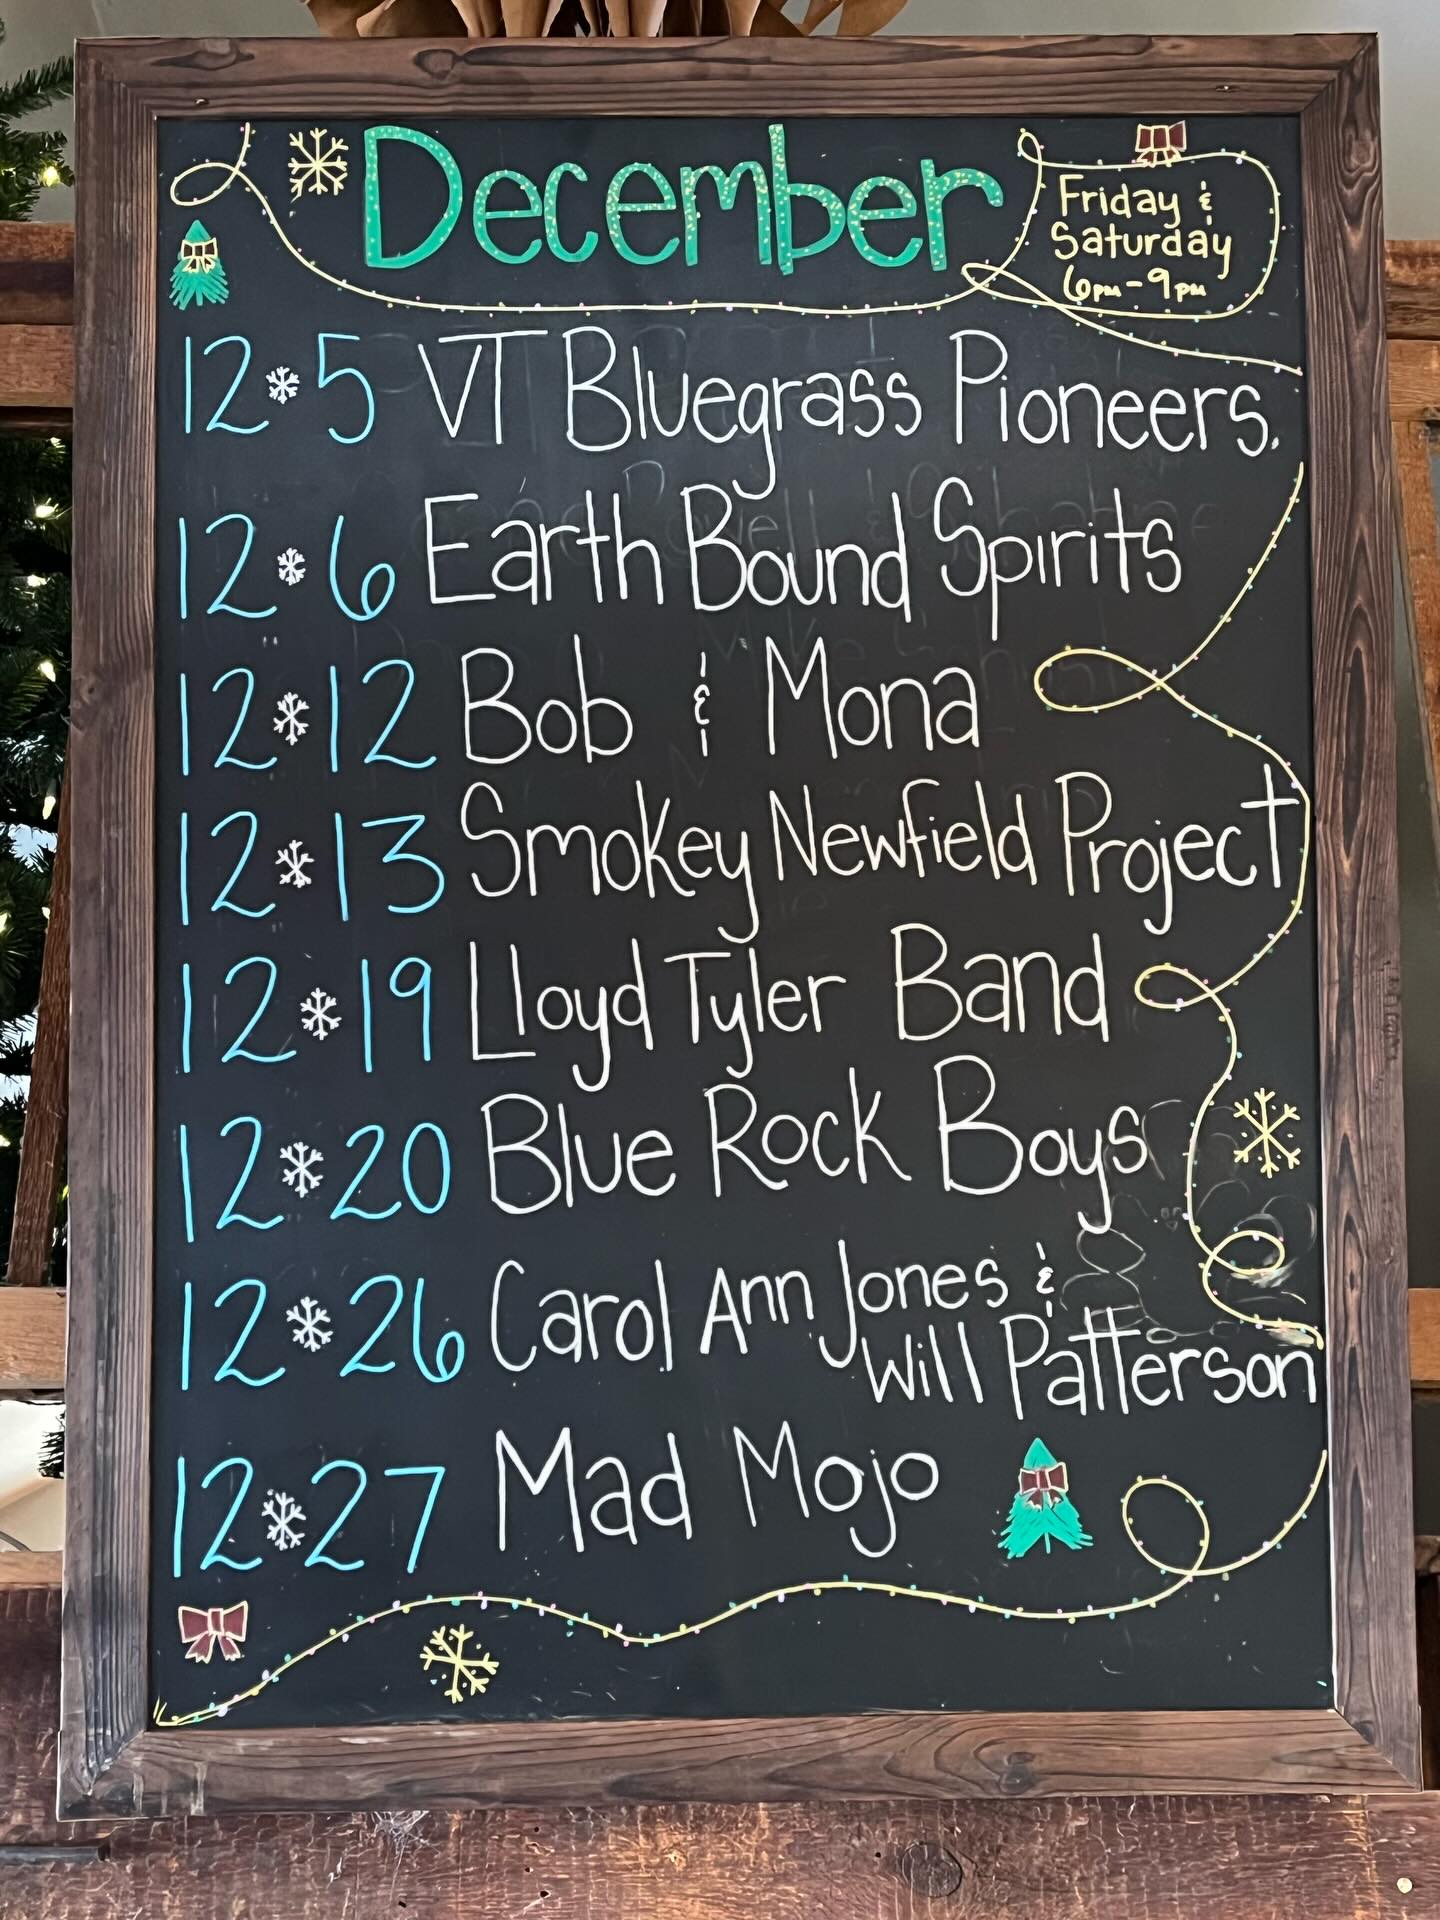 December
Friday &
Saturday
6PM - 9PM
12 5 VT Bluegrass Pioneers.
12 6 Earth Bound Spirits
12 12 Bob & Mona
12 13 Smokey Newfield Project
12 19 Lloyd Tyler Band
12 20 Blue Rock Boys
12 26 Carol Ann Jones &
Will Patterson
12 27 Mad Mojo